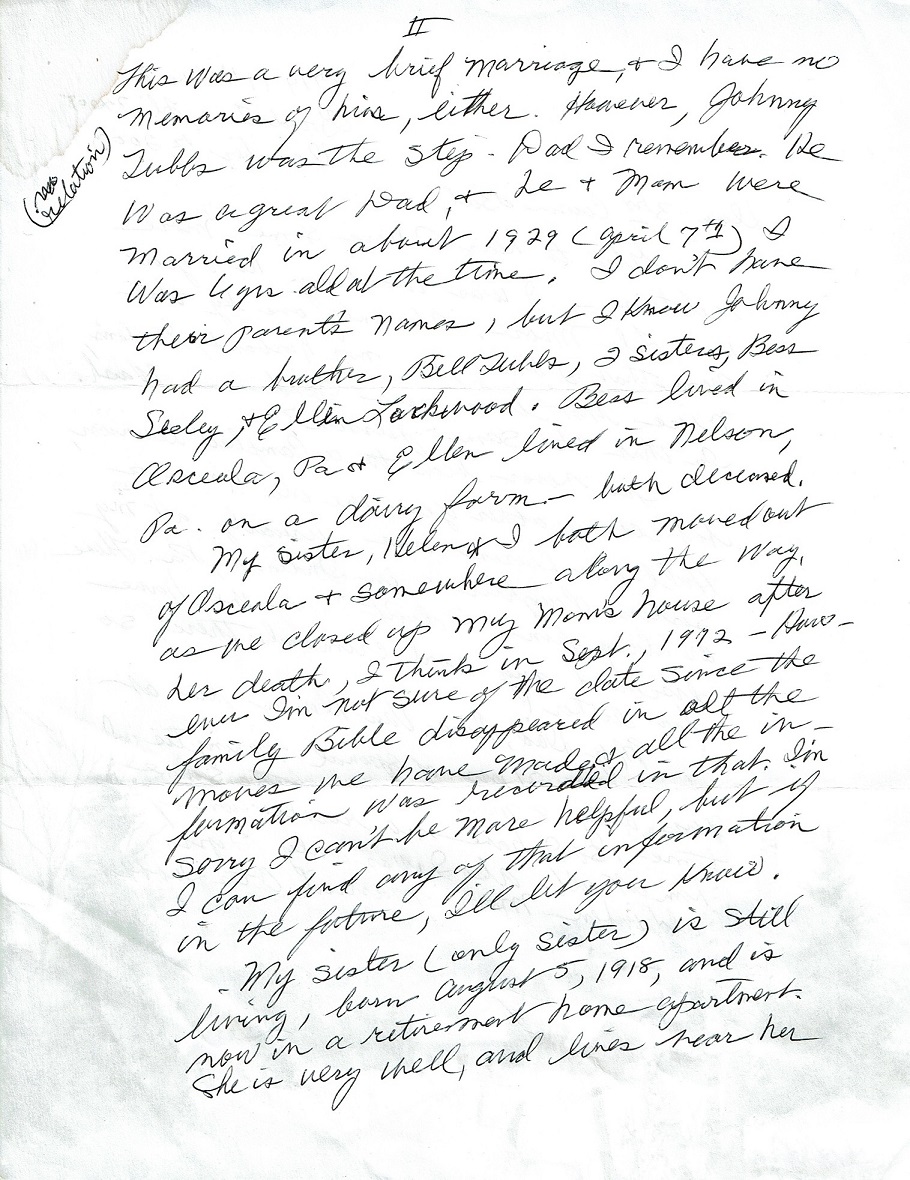 II
This was a very brief marriage, & I have no
memories of him, either. However, Johnny
Tubbs was the Step-Dad I remember. He
(relation)
was a great Dad, & he & Mom were
married in about 1929 (April 7th) I
was yrs old at the time. I don't have
their parent's names, but I know Johnny
had a brother, Bill Tubbs, 2 sisters, Bess
Seeley, & Ellen Lockwood. Bess lived in
Osceola, Pa & Ellen lived in Nelson,
Pa. on a dairy farm - both deceased.
My sister, Helen & I both moved out
of Osceola & somewhere along the way,
as we closed up my Mom's house after
her death, I think in Sept., 1972 - How-
ever I'm not sure of the date since the
family Bible disappeared in all the
moves we have made & all the in-
formation was recorded in that. I'm
sorry I can't be more helpful, but if
I can find any of that information
in the future, I'll let you know.
- My sister (only sister) is still
living, born August 5, 1918, and is
now in a retirement home apartment.
She is very well, and lives near her